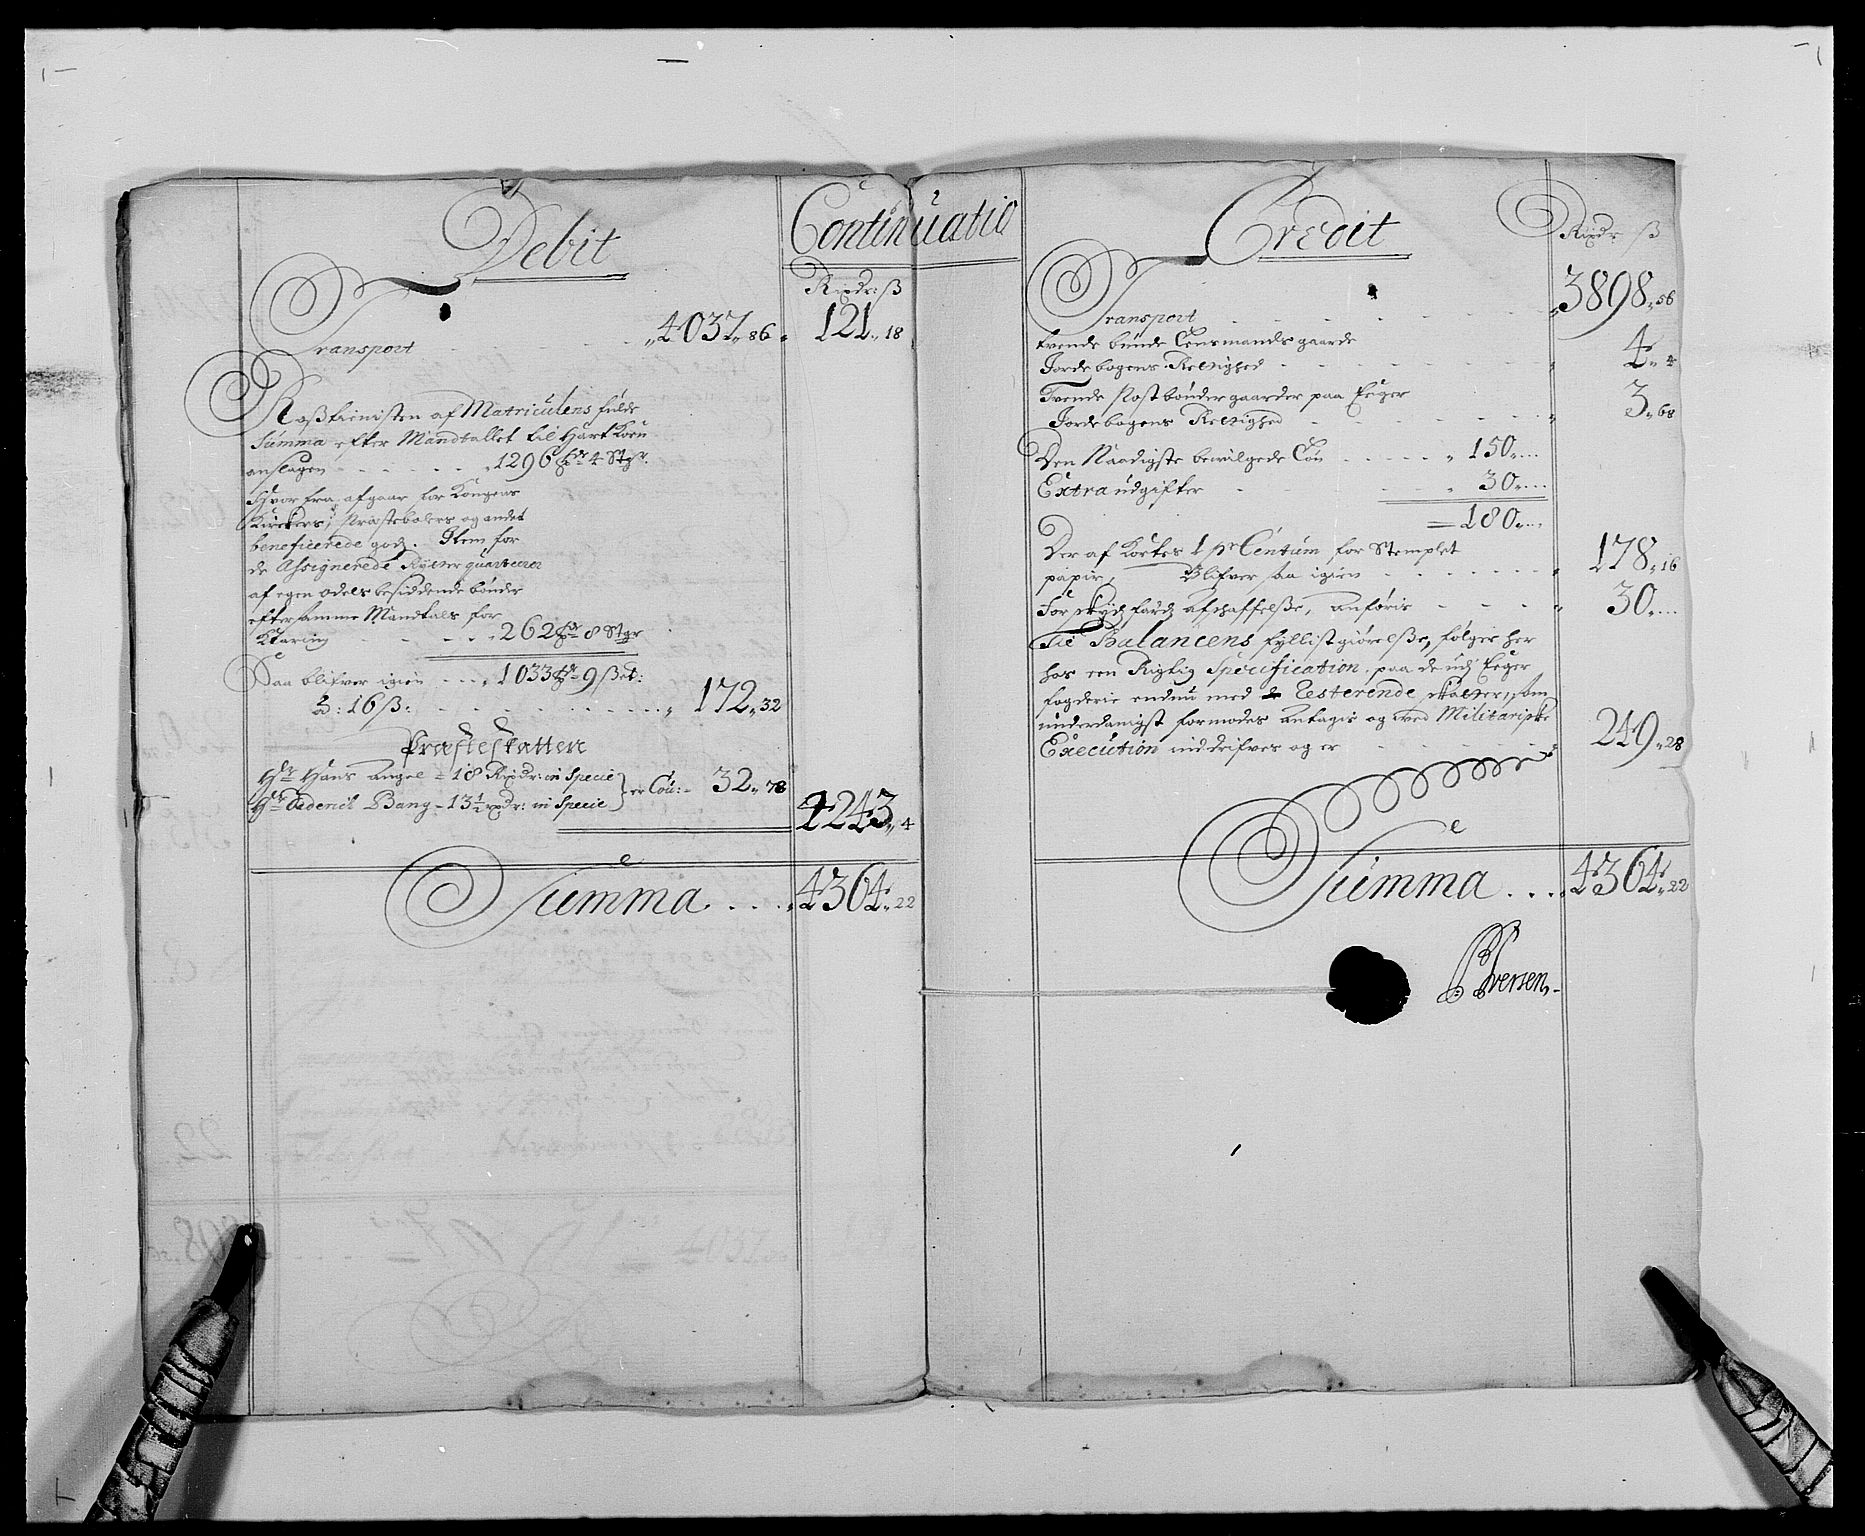 Debit
Continuatio
Rixdr: ß
Transport . . . . . . „4037„86„ 121„18
Roßtienisten af Matriculens fulde
Summa efter Mandtallet til Hart Korn
anslagen - - - - - „1296 4 Stgr.
Hvor fra afgaar for Kongens
Kirckers, Præstebolers og andet
beneficerede godz. Item for
de Assignerede Rÿtterquarterer
af egen odels besiddende bønder
efter samme Mandtals for
Klaring - - - - „262 8 Stgr
Saa blifver igien - - - „1033 9 ßet:
3: 16 ß: . . . . . . . . . „ 172„32
Præsteskatten
Hr Hans Angel - 18 Rixdr: in Specie
Hr Bang - 13½ rxdr: in Specie } er Cou: - 32„78
4243„4
Summa . . . . „4364„22
Credit
Rixdr ß
Transport - - - - - - - „3898„56
tvende bunde Lensmands gaarde
Jordebogens Rettighed - - - - - - - „ 4„4
Tvende Postbønder gaarder paa Eeger
Jordebogens Rettighed - - - - - - „ 3„68
Den Naadigste bevilgede Løn - - - - - „ 150„...
Extra udgifter - - - - „ 30„...
= 180„...
Der af Kortes 1 pr Centum for Stemplet
papir, Blifver saa igien - - - - - - „ 178„16
For skydz færdz afskaffelße, anføris - - - - „ 30„...
Til Balancens fyllistgiørelße, følger her
hos een Rigtig Specification, paa de udj Eeger
fogderie endnu med Resterende skatter, som
underdanigst formodes antagis og ved Militariske
Execution inddrifves og er - - - - - - 249„28
Summa . . . . „4364„22
Iversen„-